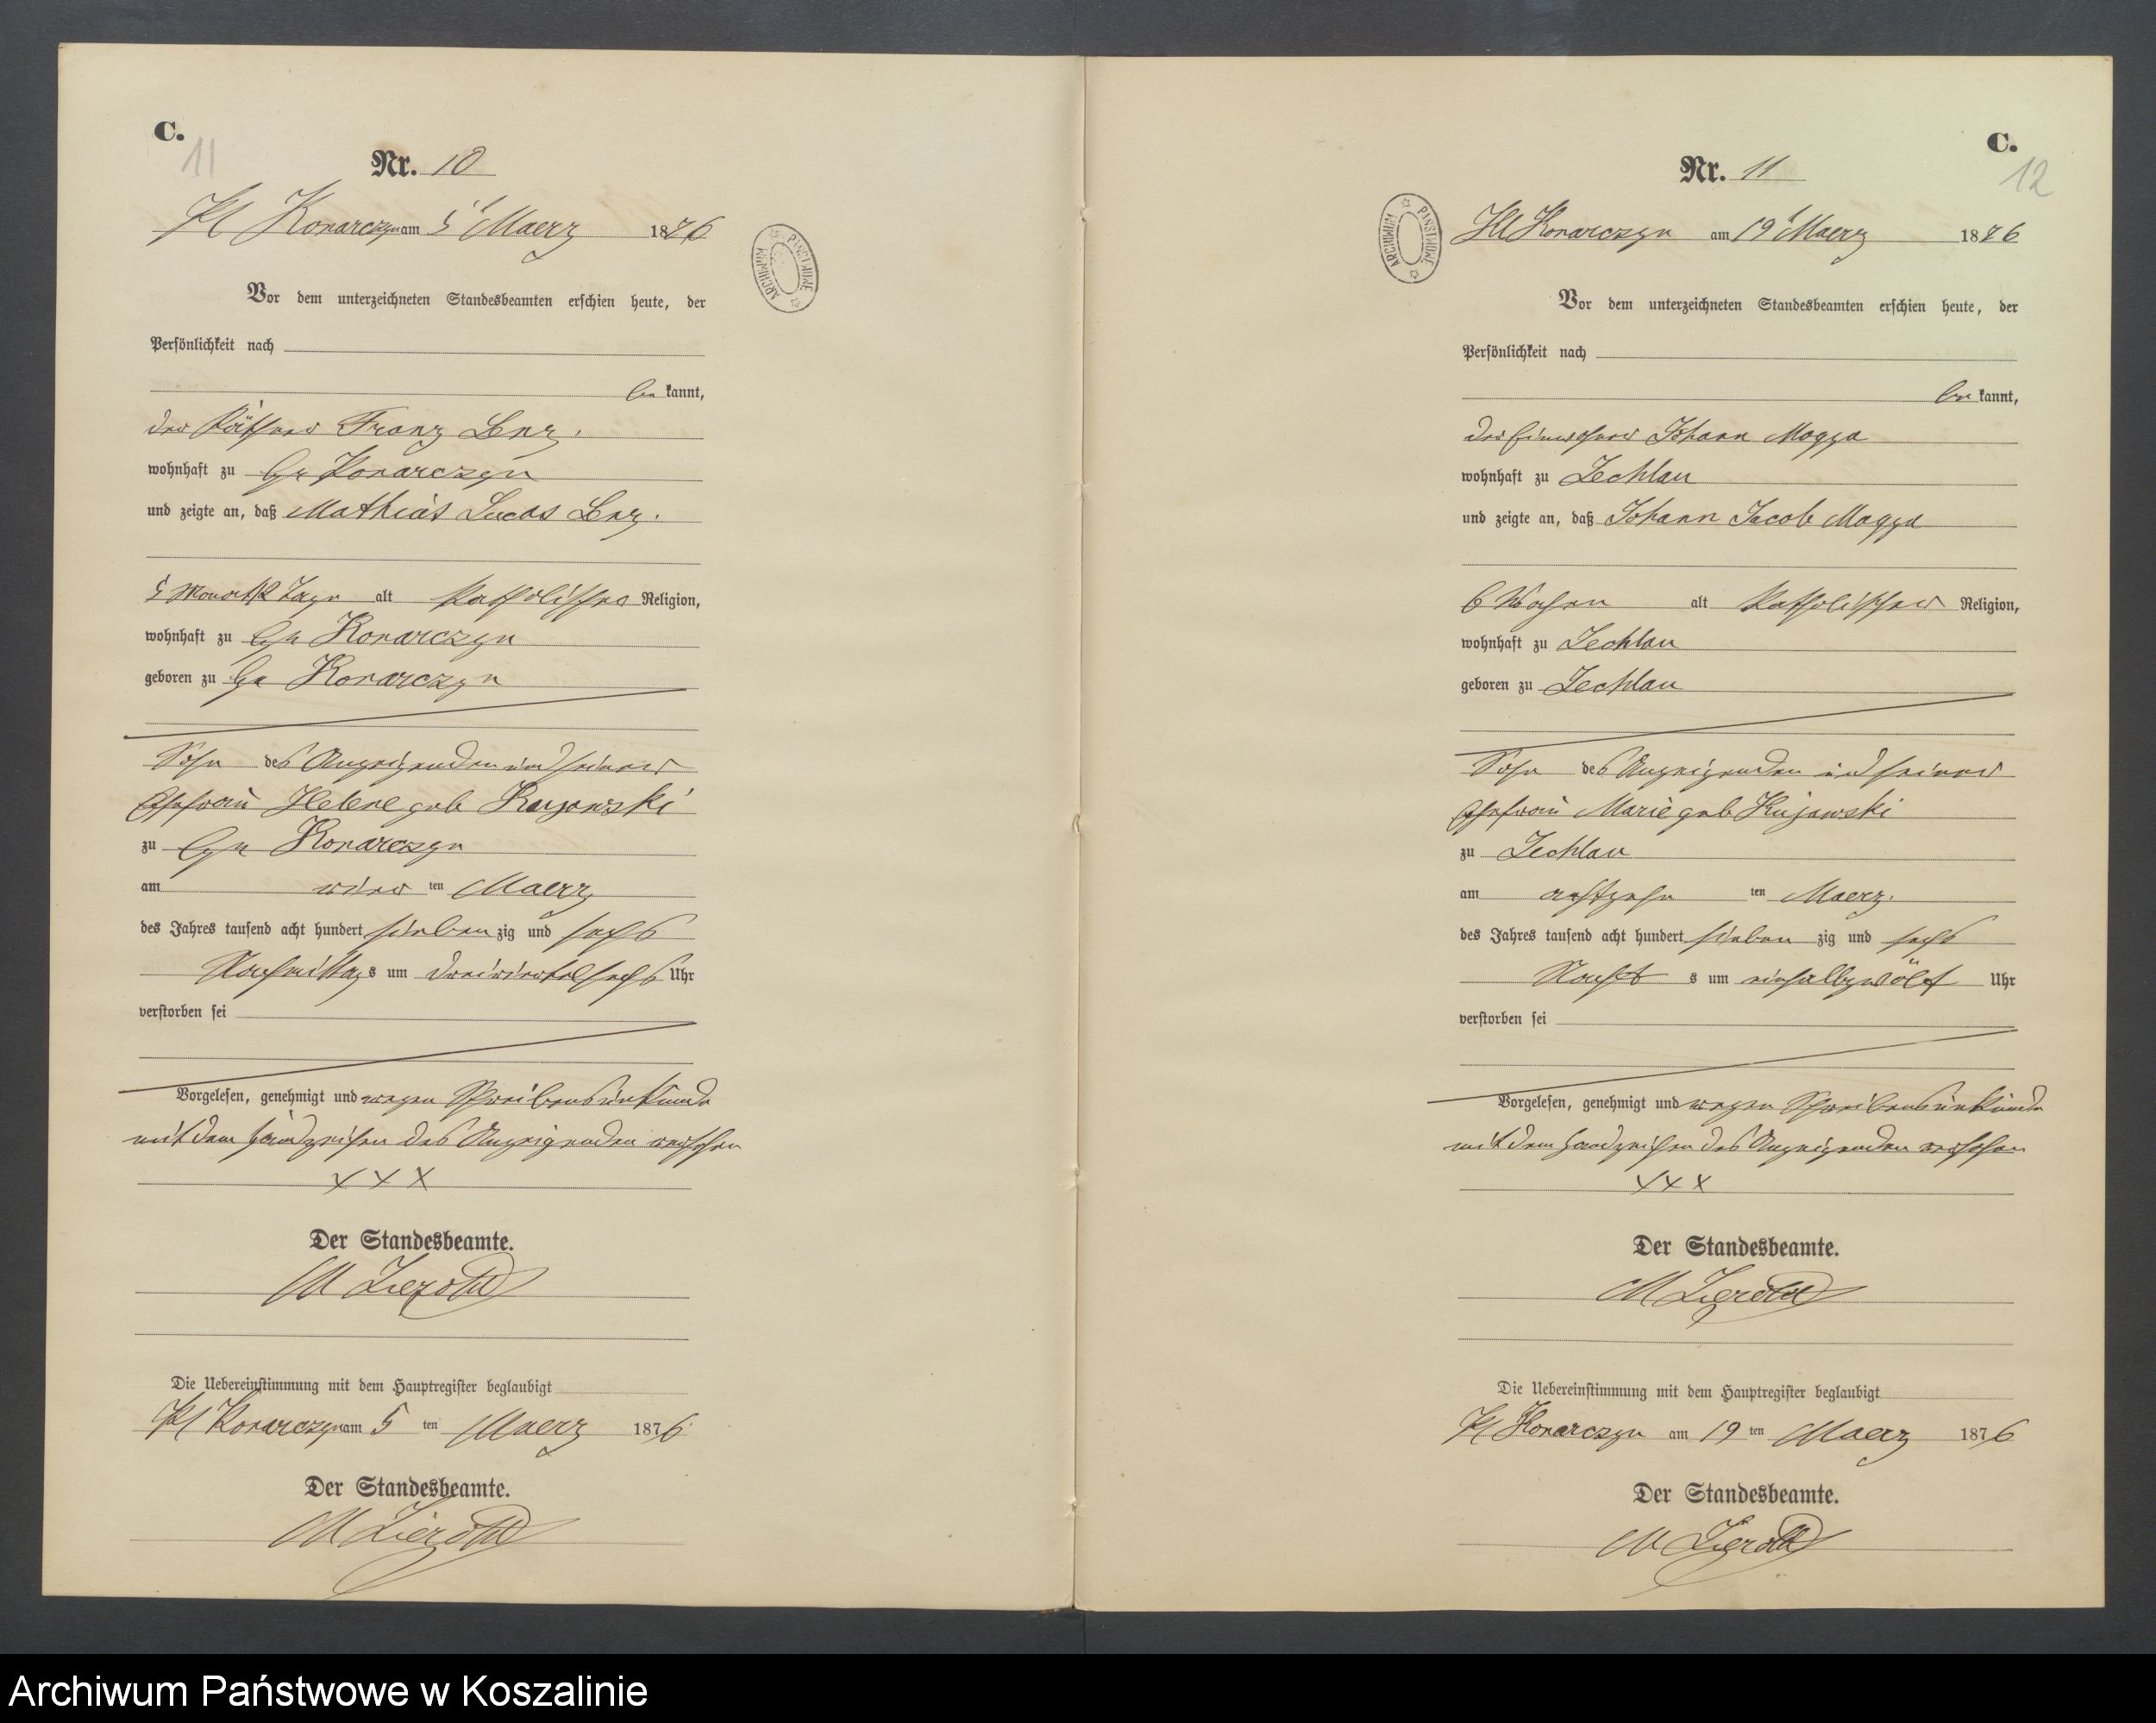 C.
11
Nr. 10
Kl Konarczyn am 5 Maerz 1876
ARCHIWUM PAŃSTWOWE
Vor dem unterzeichneten Standesbeamten erschien heute, der
Persönlichkeit nach
be kannt,
der Käthner Franz Lenz.
wohnhaft zu Gr Konarczyn
und zeigte an, daß Mathias Lucas Lenz.
5 Monat 12 Tage alt katholischer Religion,
wohnhaft zu Gr Konarczyn
geboren zu Gr Konarczyn
Sohn des Anzeigenden und seiner
Ehefrau Helene geb
zu Gr Konarczyn
am vier ten Maerz
des Jahres tausend acht hundert sieben zig und sechs
Nachmittag s um dreiviertel sechs Uhr
verstorben sei
Vorgelesen, genehmigt und wegen Schreibensunkunde
mit dem Handzeichen des Anzeigenden versehen
X X X
Der Standesbeamte.
M Zierold
Die Uebereinstimmung mit dem Hauptregister beglaubigt
Kl Konarczyn am 5 ten Maerz 1876
Der Standesbeamte.
M Zierold
C.
12
Nr. 11
Kl Konarczyn am 19 Maerz 1876
ARCHIWUM PAŃSTWOWE
Vor dem unterzeichneten Standesbeamten erschien heute, der
Persönlichkeit nach
be kannt,
der Einwohner Johann Mogga
wohnhaft zu Zechlau
und zeigte an, daß Johann Jacob Mogga
6 Wochen alt katholischer Religion,
wohnhaft zu Zechlau
geboren zu Zechlau
Sohn des Anzeigenden und seiner
Ehefrau Marie geb Kujawski
zu Zechlau
am achtzehn ten Maerz.
des Jahres tausend acht hundert sieben zig und sechs
Nacht s um einhalbzwölf Uhr
verstorben sei
Vorgelesen, genehmigt und wegen Schreibensunkunde
mit dem Handzeichen des Anzeigenden versehen
X X X
Der Standesbeamte.
M Zierold
Die Uebereinstimmung mit dem Hauptregister beglaubigt
Kl Konarczyn am 19 ten Maerz 1876
Der Standesbeamte.
M Zierold
Archiwum Państwowe w Koszalinie